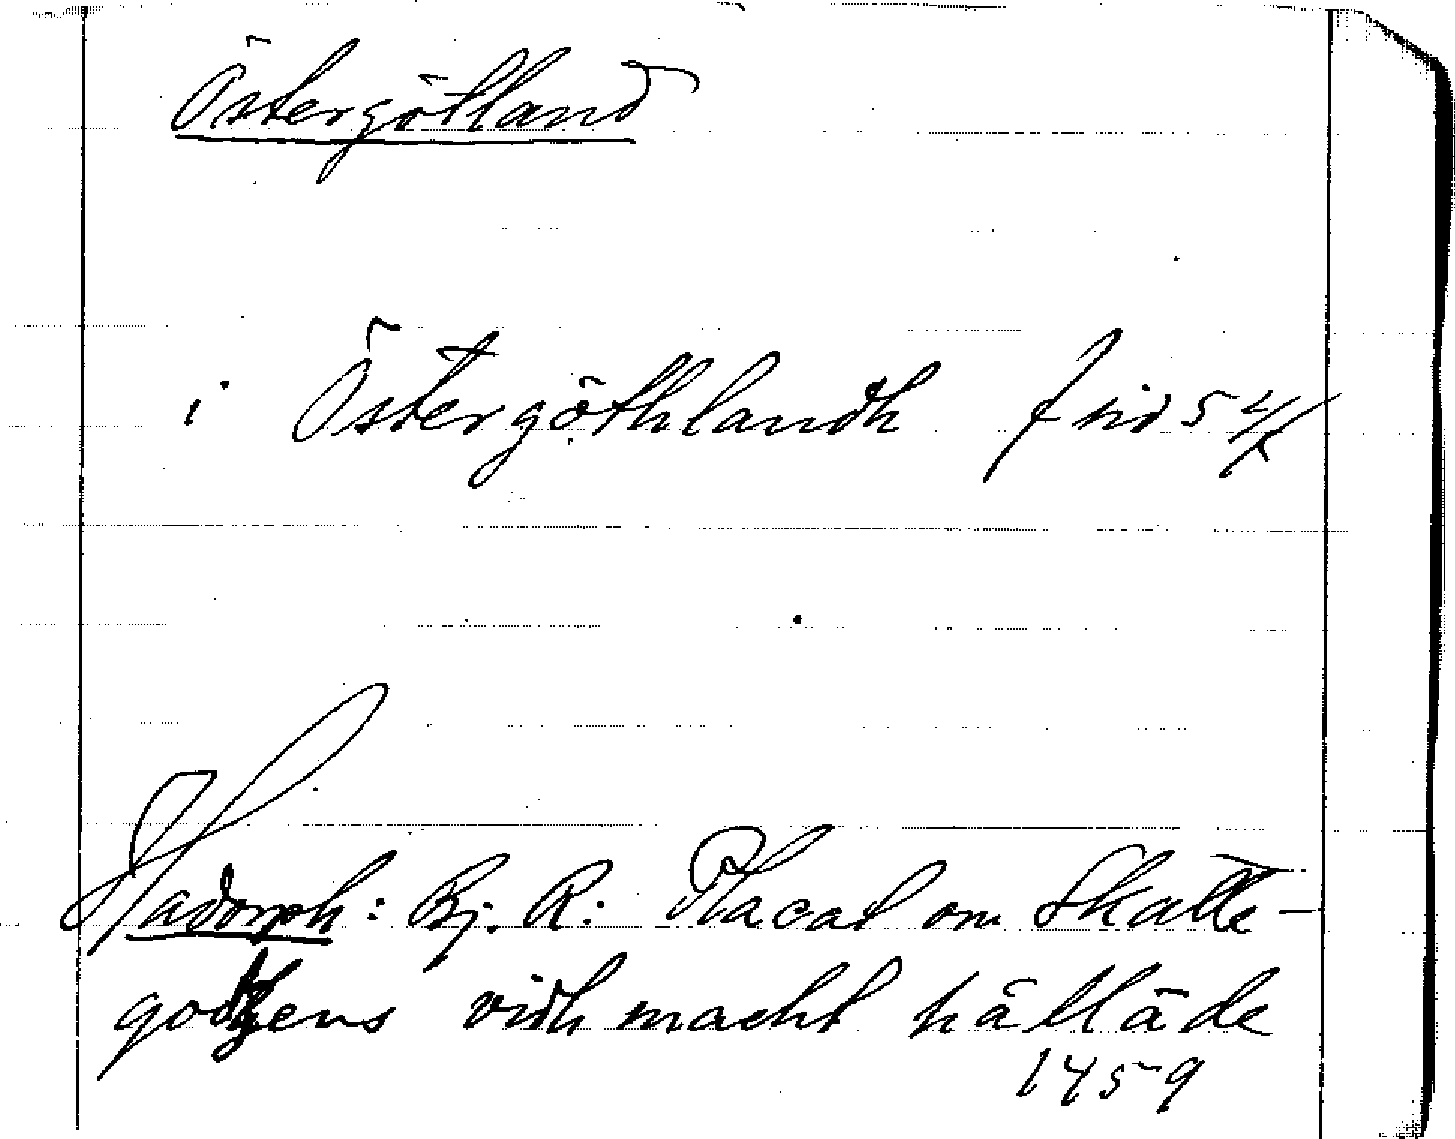 Östergötland
i Östergöthlandh f sid 54
Hadorph: Bj. R. Placat om Skatte-
godzens vidh macht hållāde
1459